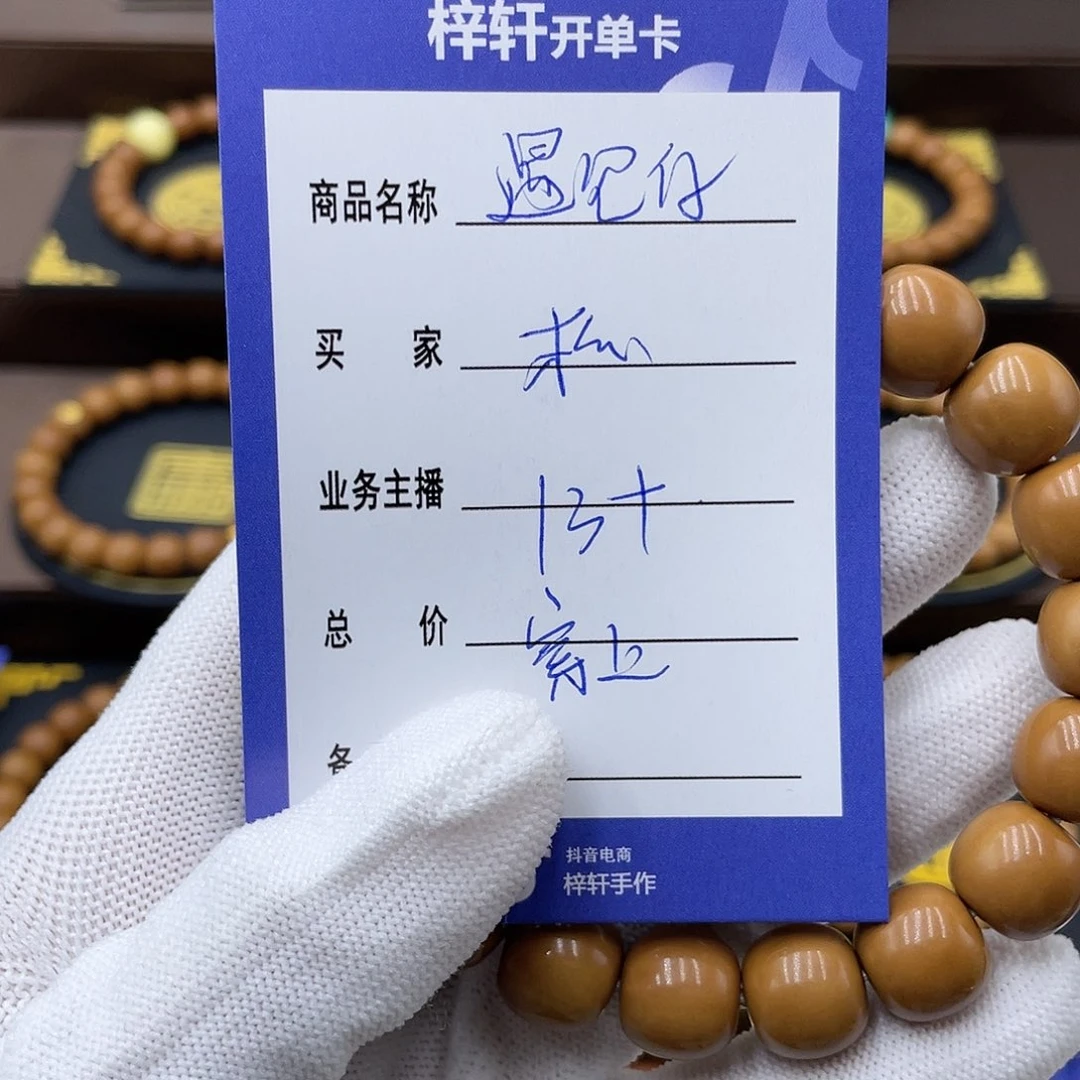 梓轩开单卡
商品名称
买 家
业务主播 13十
总 价 穿上
备
抖音电商
梓轩手作